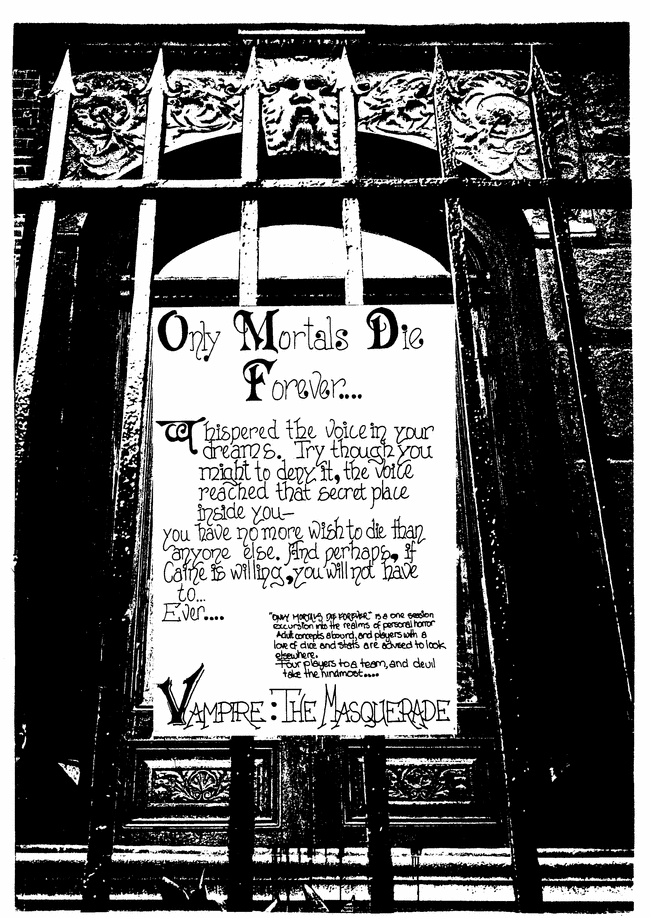 Only Mortals Die
Forever....
Whispered the voice in your
dreams. Try though you
might to deny it, the voice
reached that secret place
inside you—
you have no more wish to die than
anyone else. And perhaps, if
Caine is willing, you will not have
to...
Ever....
"ONLY MORTALS DIE FOREVER" is a one session
excursion into the realms of personal horror
Adult concepts abound, and players with a
love of dice and stats are advised to look
elsewhere.
Four players to a team, and devil
take the hindmost....
VAMPIRE : THE MASQUERADE